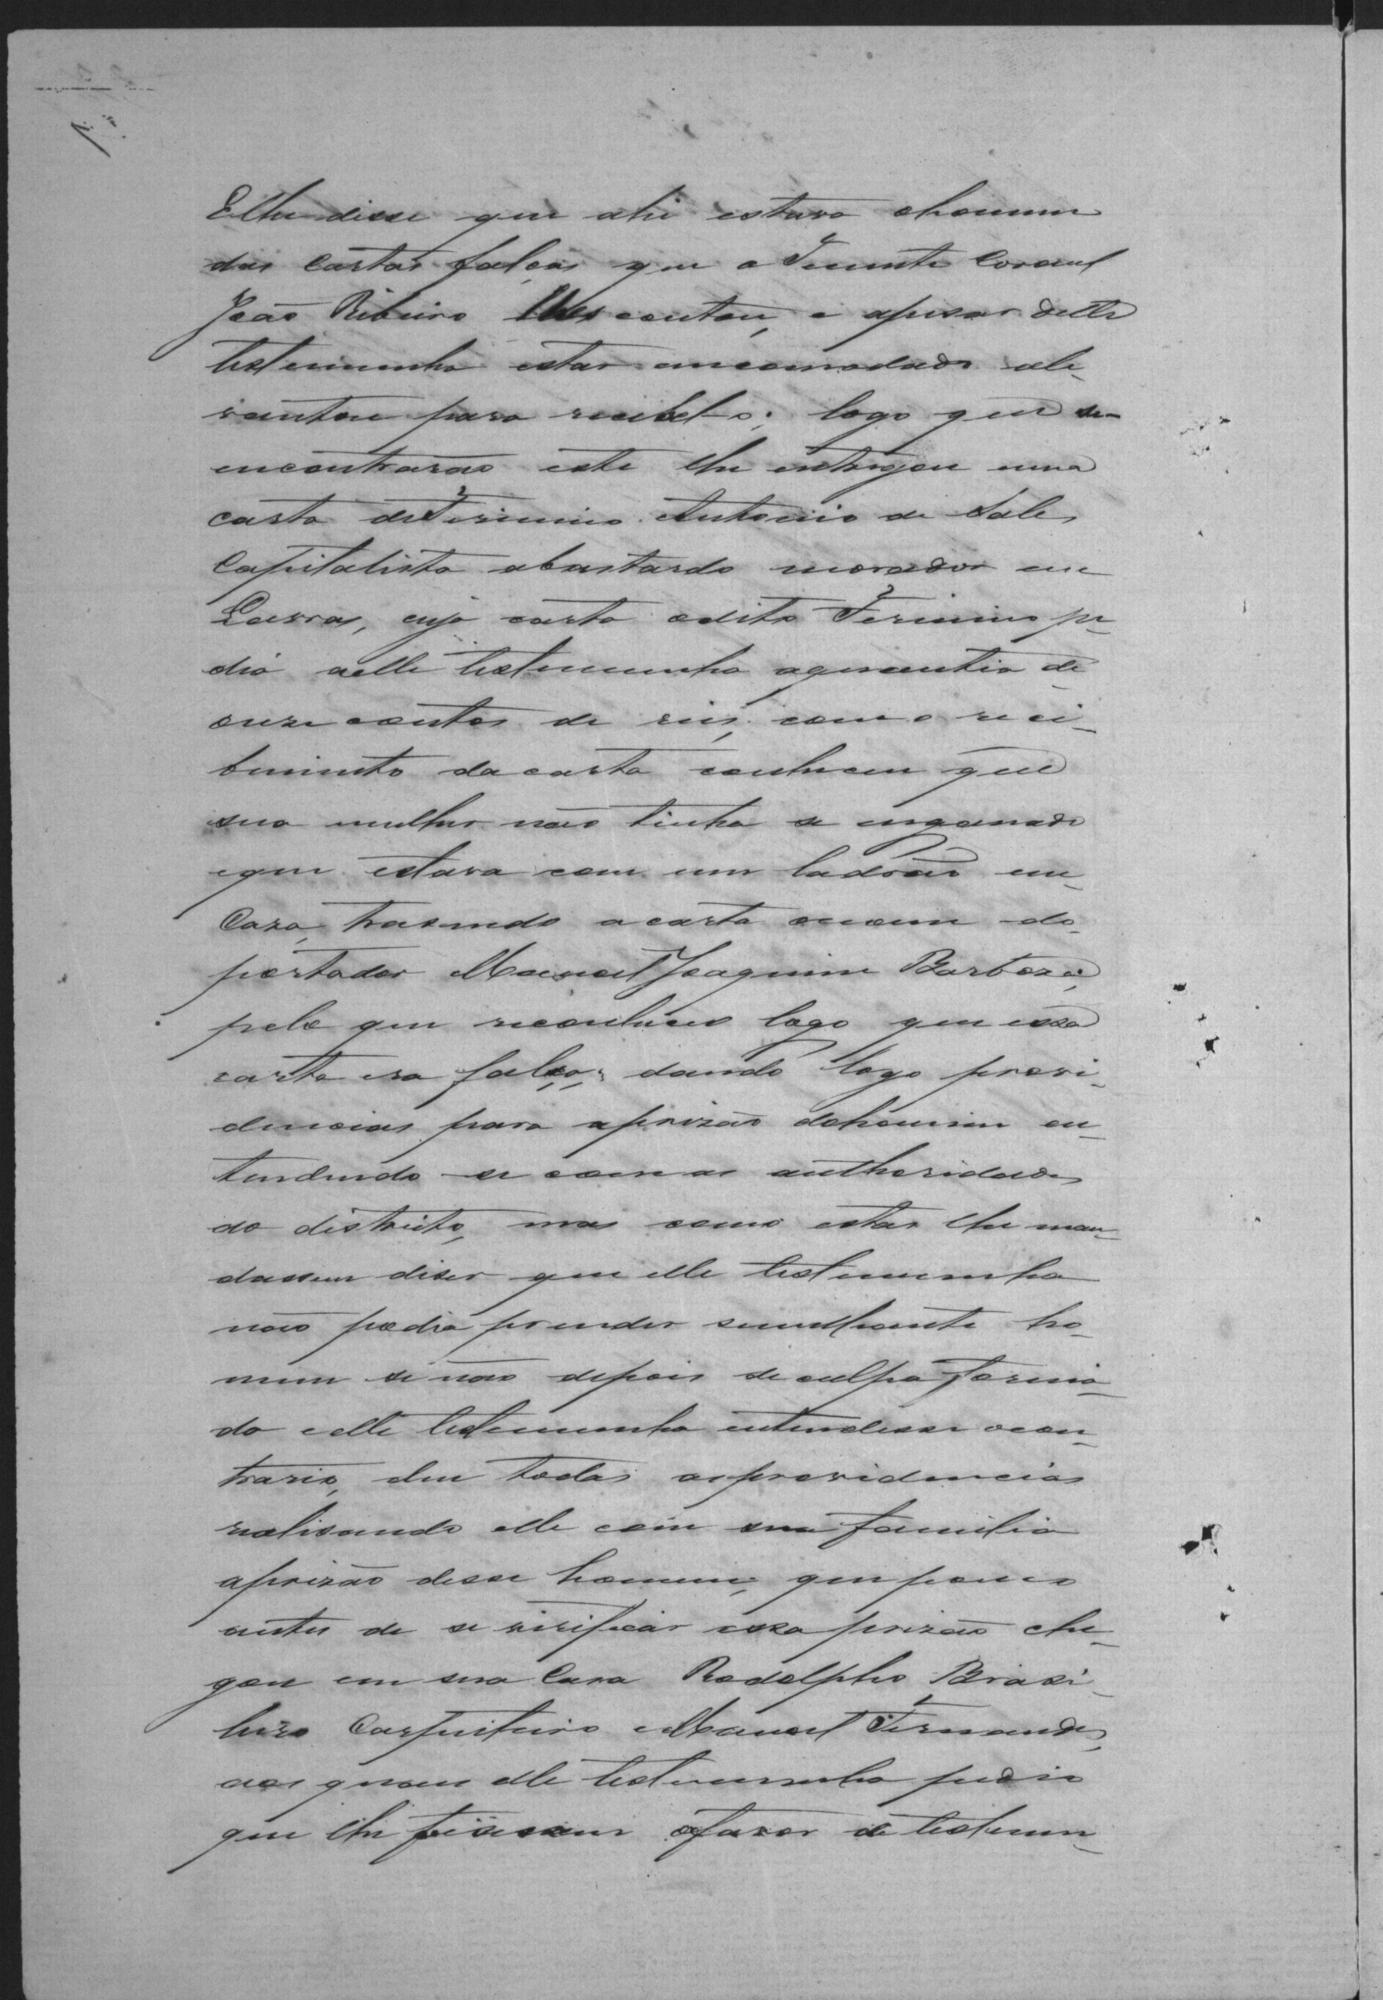 Elhe disse que ahi estava ohomem
das cartas falças que o Tenente Coronel
João Ribeiro lhes contou, e apezar delle
testemunha estar emcomodado ale-
vantou para recebel-o; logo que se
encontrarão este lhe entregou uma
carta de Fermino Antonio de Sales
Capitalista abastardo morador em
Lavras, cuja carta odito Fermino pe-
dia aelle testemunha agarantia de
onze contos de reis, com o rece-
bimento da carta conheceu que
sua mulher não tinha se enganado
eque estava com um ladrão em
Caza, trasendo a carta onome do
portador Manoel Joaquim Barboza,
pelo que reconheceu logo que essa
carta era falça; dando logo provi-
dencias para aprizão dohomem en-
tendendo se com as authoridades
do districto, mas como estas lhe man-
dassem diser que elle testemunha
não podia prender semelhante ho-
mem se não depois de culpa forma-
da eelle testemunha entendesse ocon-
trario, deu todas asprovidencias
realisando elle com sua familia
aprizão desse homem, que pouco
antes de se verificar essa prizão che-
gou em sua Caza Rodolpho Brasi-
leiro Carpinteiro e Manoel Fernandes,
aos quaes elle testemunha pedio
que lhe fisessem ofavor de testemu-